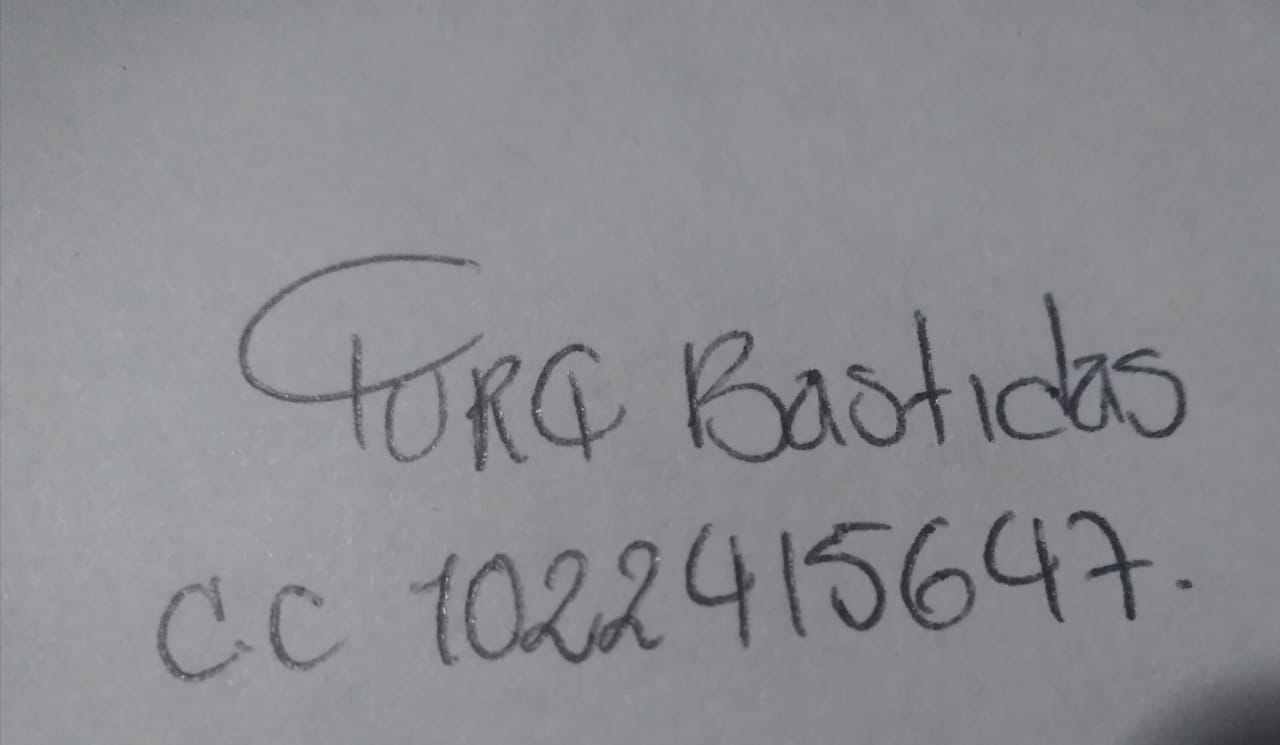 Bastidas
C.C 1022415647.